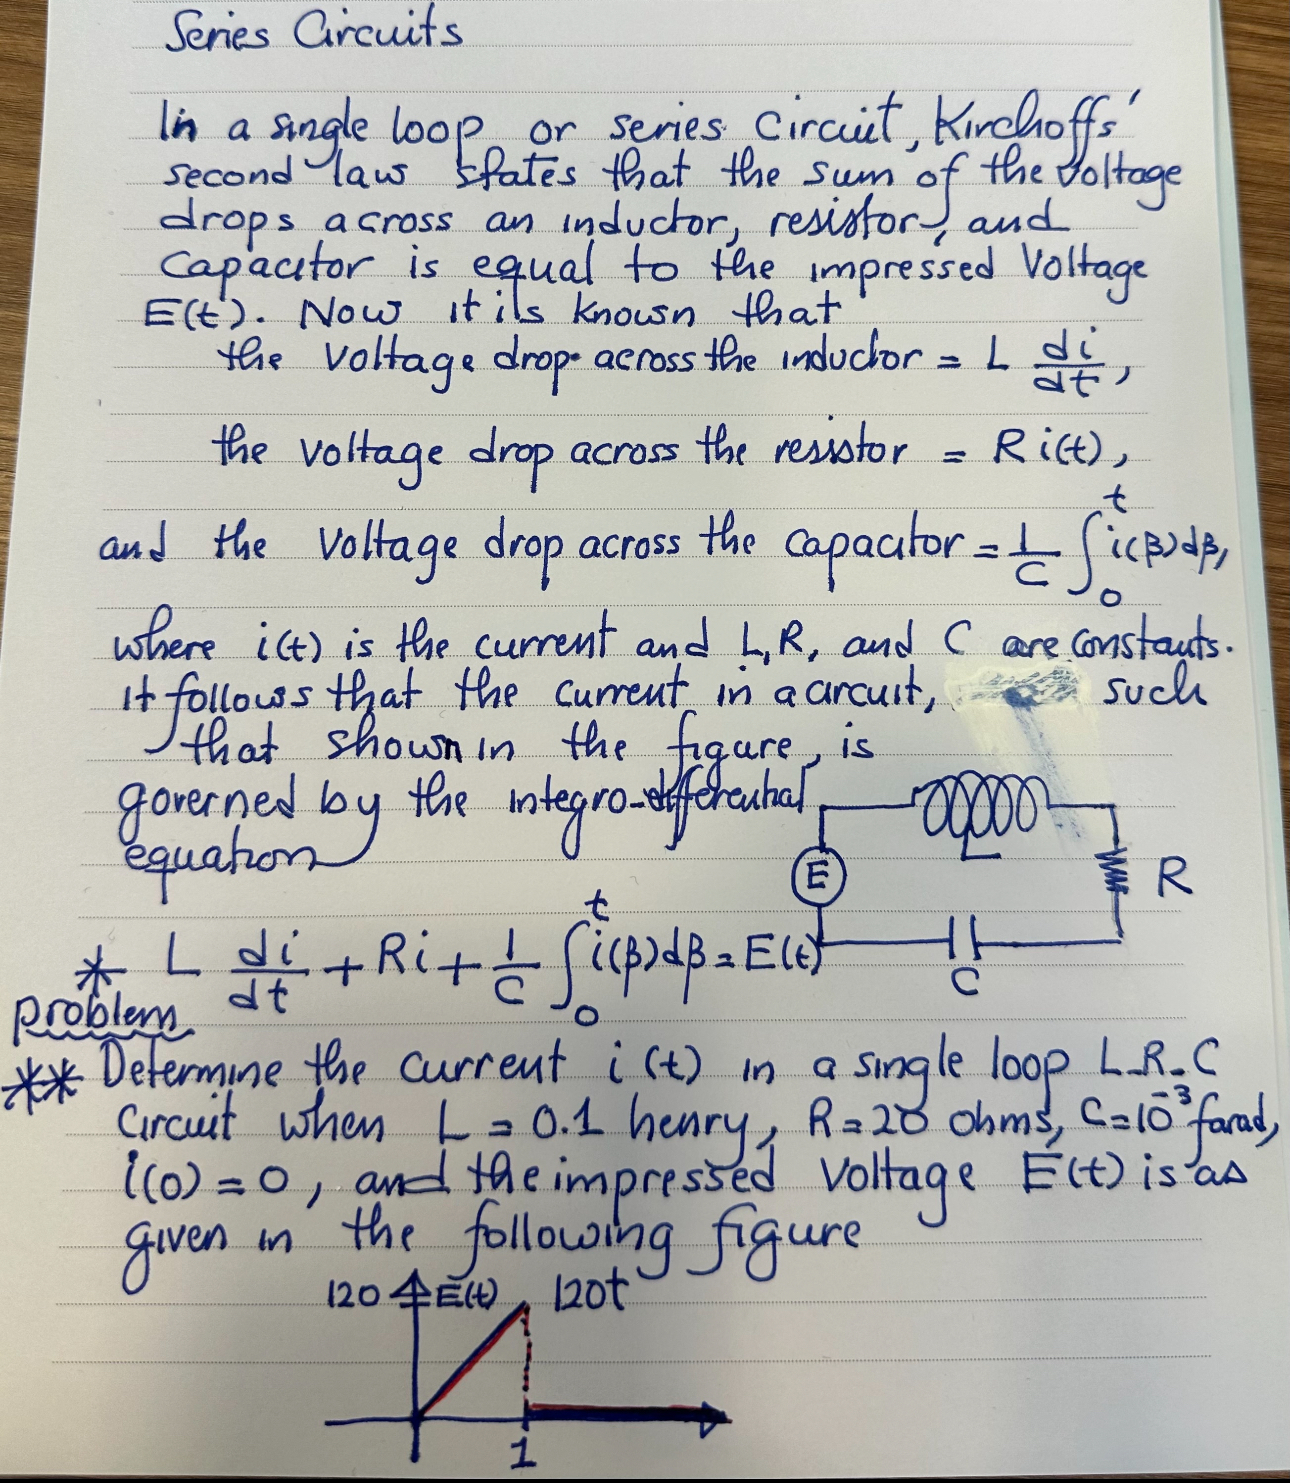 Series Circuits
In a single loop or series Circuit, Kirchoffs'
second law states that the sum of the voltage
drops across an inductor, resistor, and
Capacitor is equal to the impressed Voltage
E(t). Now it is known that
the voltage drop across the inductor = L di/dt,
the voltage drop across the resistor = R i(t),
and the voltage drop across the capacitor = 1/C ∫₀ᵗ i(β)dβ,
where i(t) is the current and L, R, and C are constants.
It follows that the current in a circuit, such
that shown in the figure, is
governed by the integro-differential
equation
L
E
R
C
* L di/dt + Ri + 1/C ∫₀ᵗ i(β)dβ = E(t)
problem
** Determine the current i(t) in a single loop L-R-C
Circuit when L = 0.1 henry, R = 20 ohms, C = 10⁻³ farad,
i(0) = 0, and the impressed Voltage E(t) is as
given in the following figure
120 E(t) 120t
1